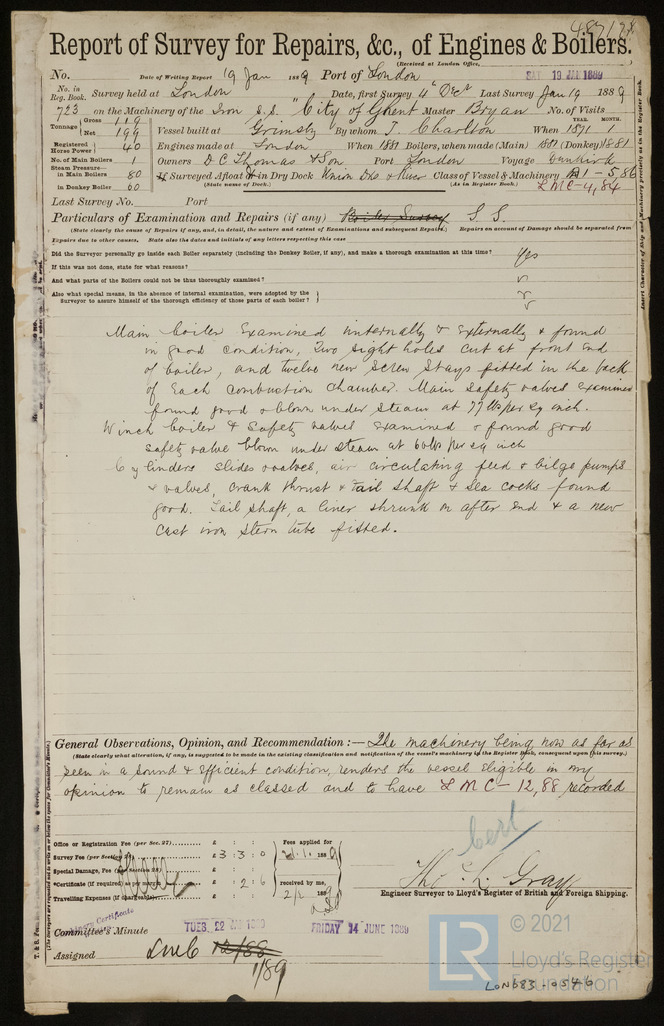 Report of Survey for Repairs, &c., of Engines & Boilers.
(Received at London Office,
No. Date of Writing Report 19 Jan 1889 Port of London SAT 19 JAN 1889
No. in Reg. Book. Survey held at London Date, first Survey 4 Dec Last Survey Jan 19 1889
723 on the Machinery of the Iron S.S. "City of Ghent" Master Bryan No. of Visits
Tonnage Gross Net 199 Vessel built at Grimsby By whom T. Charlton When YEAR. 1871 MONTH. 1
Registered Horse Power 40 Engines made at London When 1881 Boilers, when made (Main) 1881 (Donkey) 1881
No. of Main Boilers 1 Owners D C Thomas & Son Port London Voyage Dunkirk
Steam Pressure in Main Boilers 80 If Surveyed Afloat or in Dry Dock Union Dk & River Class of Vessel & Machinery A1 - 5,86
(State name of Dock.) (As in Register Book.) LMC-4,84
in Donkey Boiler 60
Last Survey No. Port
Particulars of Examination and Repairs (if any) Boiler Survey S. S.
(State clearly the cause of Repairs if any, and, in detail, the nature and extent of Examinations and subsequent Repairs.) Repairs on account of Damage should be separated from
Repairs due to other causes, State also the dates and initials of any letters respecting this case
Did the Surveyor personally go inside each Boiler separately (including the Donkey Boiler, if any), and make a thorough examination at this time? Yes
If this was not done, state for what reasons?
And what parts of the Boilers could not be thus thoroughly examined?
Also what special means, in the absence of internal examination, were adopted by the
Surveyor to assure himself of the thorough efficiency of those parts of each boiler?
Main boiler Examined internally & Externally & found
in good condition, Two sight holes cut at front End
of boiler, and twelve new screw stays fitted in the back
of Each combustion chamber. Main safety valves examined
found good & blown under steam at 77 lbs per sq inch.
Winch boiler & safety valves Examined & found good
safety valve blown under steam at 60 lbs per sq inch
Cylinders slides & valves, air circulating feed & bilge pumps
& valves, crank thrust & tail shaft & sea cocks found
good. Tail shaft, a liner shrunk on after end & a new
cast iron stern tube fitted.
General Observations, Opinion, and Recommendation :— The machinery being now as far as
(State clearly what alteration, if any, is suggested to be made in the existing classification and notification of the vessel's machinery in the Register Book, consequent upon this survey.)
seen in a sound & Efficient condition, renders the vessel Eligible in my
opinion to remain as classed and to have LMC - 12,88 recorded
cert
Office or Registration Fee (per Sec. 27) £ : : Fees applied for
Survey Fee (per Section £ 3 : 3 : 0 188
Special Damage, Fee £ : :
Certificate (if required) as per £ : 2 : 6 received by me,
Travelling Expenses (if chargeable) £ : :
Tho. K. Gray
Engineer Surveyor to Lloyd's Register of British and Foreign Shipping.
Committee's Minute TUES. 22 JAN 1889 FRIDAY 14 JUNE 1889
Assigned LMC 12/88
1/89
LR © 2021
Lloyd's Register
Foundation
LON683-0546